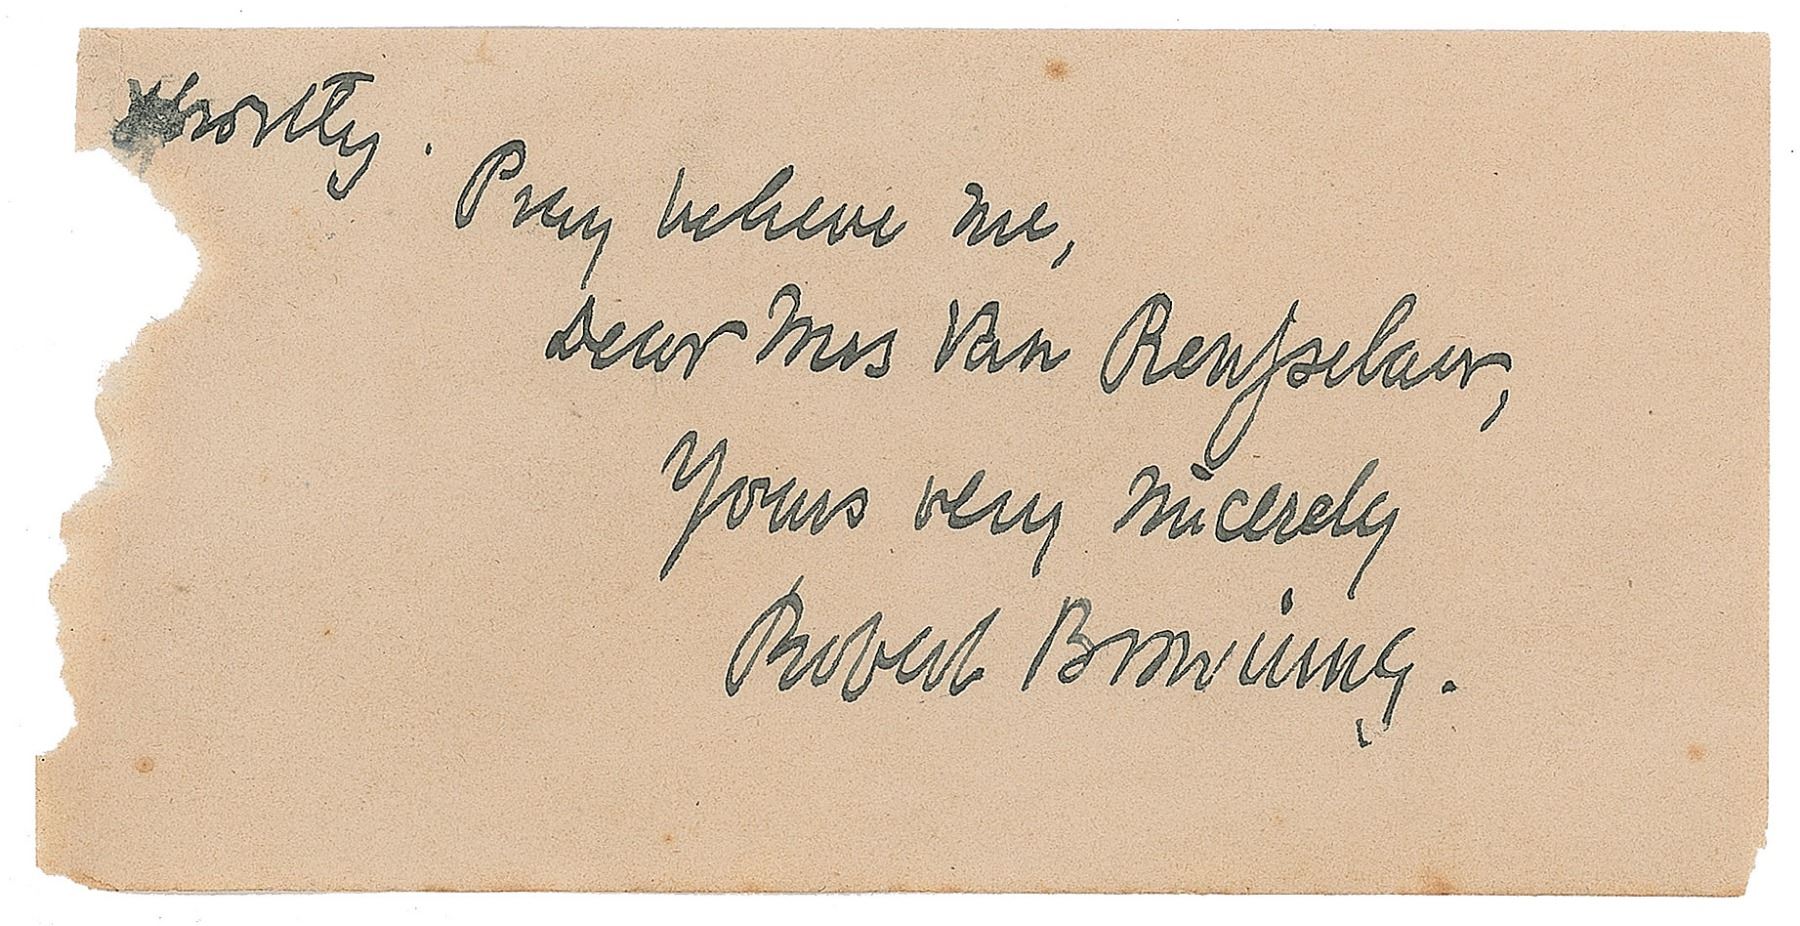 shortly.
Pray believe me,
Dear Mrs Van Rensselaer,
Yours very sincerely
Robert Browning.